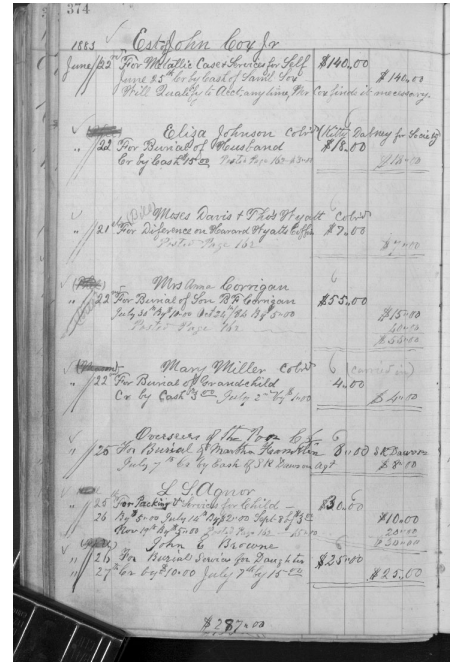 374
1885 Est John Cox Jr
June 22nd For Metallic Case & Services for Self $140.00
June 25th Cr by Cash of Sand Cox $140.00
Will Qualify to Acct. any time, Mr Cox finds it necessary.
Eliza Johnson cold (Kitty Dabney for Society)
" 22 For Burial of Husband $18.00
Cr by Cash $15.00 Posted Page 162
Moses Davis & Thos Wyatt cold
" 21 For Diference on Howard Wyatts Coffin $7.00
Posted Page 162
Mrs Anna Corrigan
" 22nd For Burial of Son B.F. Corrigan $55.00
$15.00
Posted Page 162 $55.00
Mary Miller cold
" 22nd For Burial of Grandchild 4.00
Cr by Cash $3.00 July 2nd by $1.00 $4.00
Overseers of the Poor
" 25 For Burial of Martha Hamblin 8.00
July 7th Cr by Cash of S R Dawson Agt $8.00
L S Agnor
" 25th For Packing & Services for Child $30.00
26 By $5.00 July 16th By $2.00 Sept 8 by $3.00 $10.00
Nov 19th By $5.00 Posted Page 162 20.00
$30.00
John C Browne
" 26 For Burial Services for Daughter $25.00
" 27th Cr by $10.00 July 7th by 15.00 $25.00
$287.00